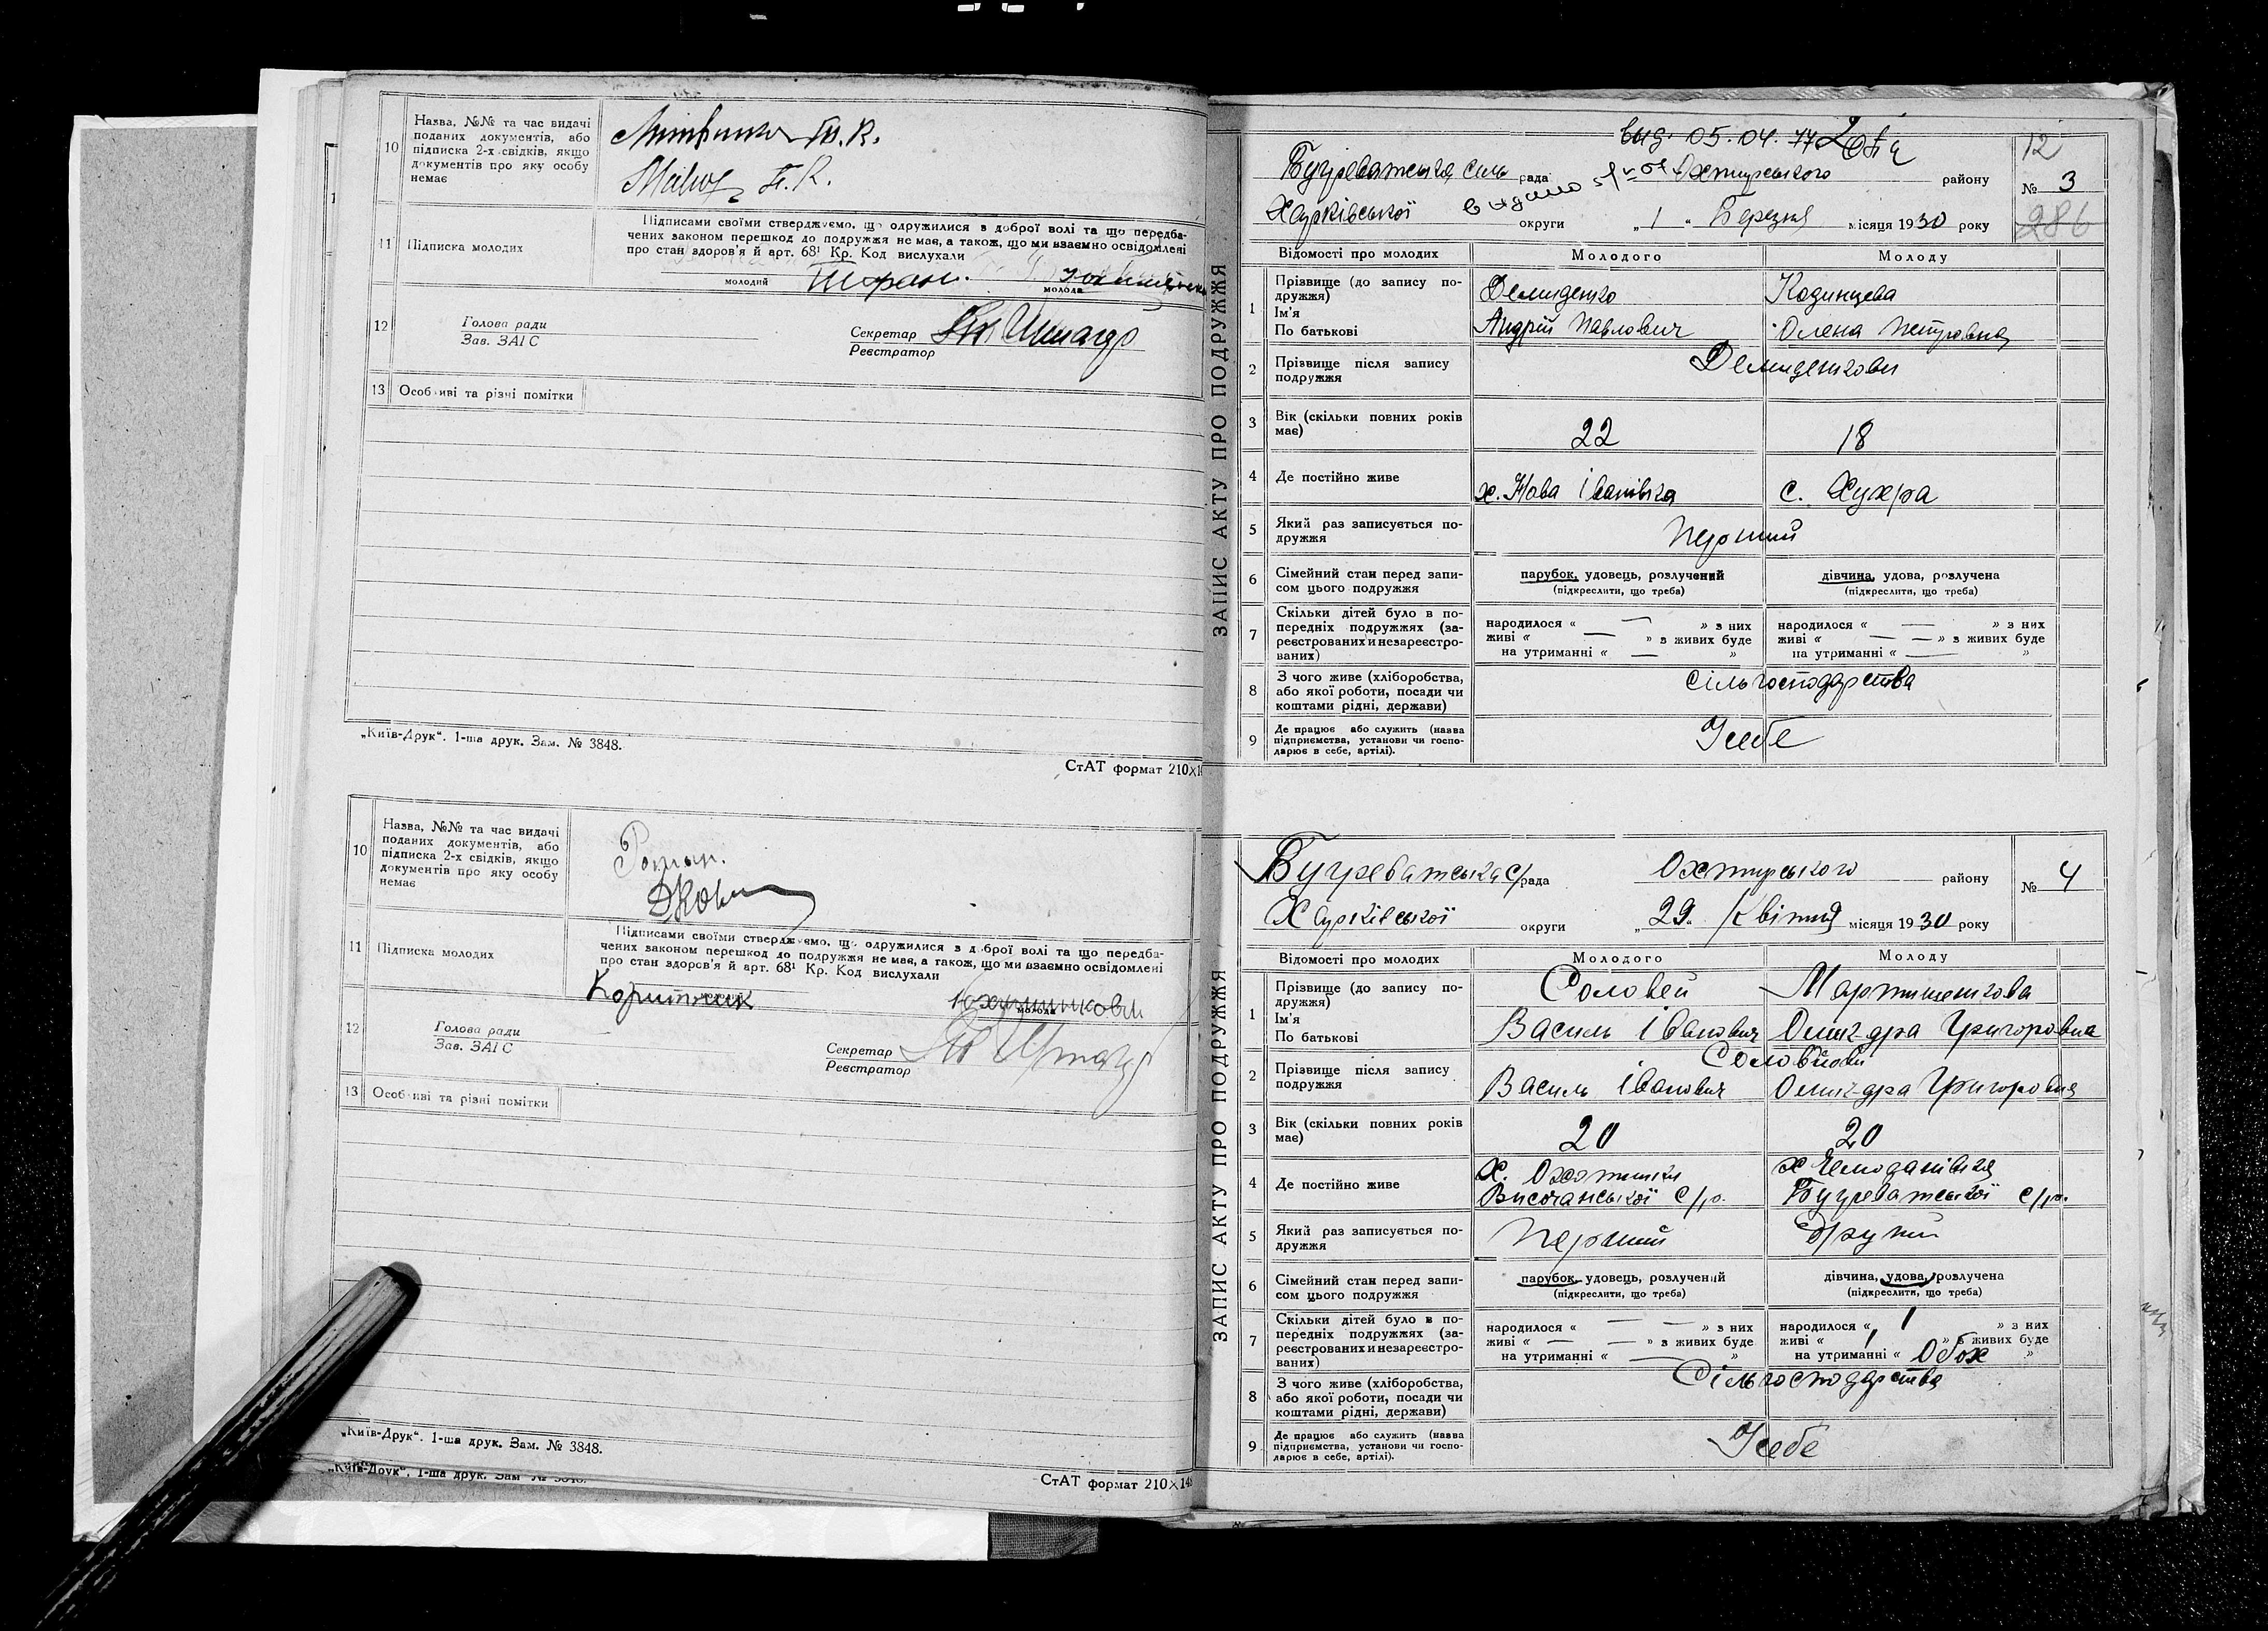 10
Назва, №№ та час видачі
поданих документів, або
підписка 2-х свідків, якщо
документів про яку особу
немає
11
Підписка молодих
Підписами своїми стверджуємо, що одружилися з доброї волі та що передба-
чених законом перешкод до подружжя не має, а також, що ми взаємно освідомлені
про стан здоров'я й арт. 68¹ Кр. Код вислухали
молодий
молода
12
Голова ради
Зав. ЗАГС
Секретар
Реєстратор
13 Особливі та різні помітки
„Київ-Друк“. 1-ша друк. Зам. № 3848.
СтАТ формат 210×1
10
Назва, №№ та час видачі
поданих документів, або
підписка 2-х свідків, якщо
документів про яку особу
немає
11
Підписка молодих
Підписами своїми стверджуємо, що одружилися з доброї волі та що передба-
чених законом перешкод до подружжя не має, а також, що ми взаємно освідомлені
про стан здоров'я й арт. 68¹ Кр. Код вислухали
Коритник
молода
12
Голова ради
Зав. ЗАГС
Секретар
Реєстратор
13 Особливі та різні помітки
„Київ-Друк“. 1-ша друк. Зам. № 3848.
СтАТ формат 210×148
„Київ-Друк“. 1-ша друк. Зам № 3848.
ЗАПИС АКТУ ПРО ПОДРУЖЖЯ
вид. 05.04.77
12
Бугреватська сіль рада видано Охтирського району № 3
Харківської округи „1“ Березня місяця 1930 року 286
Відомості про молодих Молодого Молоду
1
Прізвище (до запису по-
дружжя) Демиденко Кодинцева
Ім'я
По батькові Андрій Павлович Олена Петровна
2
Прізвище після запису
подружжя Демиденкови
3
Вік (скільки повних років
має) 22 18
4 Де постійно живе х. Нова Іванівка с. Хухра
5
Який раз записується по-
дружжя Перший
6
Сімейний стан перед запи-
сом цього подружжя
парубок, удовець, розлучений дівчина, удова, розлучена
(підкреслити, що треба) (підкреслити, що треба)
7
Скільки дітей було в по-
передніх подружжях (за-
реєстрованих и незареєстро-
ваних)
народилося « — » з них народилося « — » з них
живі « — » з живих буде живі « — — » з живих буде
на утриманні « — » на утриманні « — »
8
З чого живе (хліборобства,
або якої роботи, посади чи
коштами рідні, держави)
сільгосподарства
9
Де працює або служить (назва
підприємства, установи чи госпо-
дарює в себе, артілі).
Усебе
ЗАПИС АКТУ ПРО ПОДРУЖЖЯ
Бугреватська с/рада Охтирського району № 4
Харківської округи „29“ Квітня місяця 1930 року
Відомості про молодих Молодого Молоду
1
Прізвище (до запису по-
дружжя) Соловей Мартиненкова
Ім'я
По батькові Василь Іванович Олик-дра Григоровна
2
Прізвище після запису
подружжя Соловйови
Василь Іванович Олик-дра Григоровна
3
Вік (скільки повних років
має) 20 20
4 Де постійно живе
х. Охотники х Чемоданівка
Височанської с/р. Бугреватської с/р.
5
Який раз записується по-
дружжя Перший Другий
6
Сімейний стан перед запи-
сом цього подружжя
парубок, удовець, розлучений дівчина, удова, розлучена
(підкреслити, що треба) (підкреслити, що треба)
7
Скільки дітей було в по-
передніх подружжях (за-
реєстрованих и незареєстро-
ваних)
народилося « — — » з них народилося « 1 » з них
живі « — — » з живих буде живі « 1 » з живих буде
на утриманні « — » на утриманні « Обох »
8
З чого живе (хліборобства,
або якої роботи, посади чи
коштами рідні, держави)
Сільгосподарства
9
Де працює або служить (назва
підприємства, установи чи госпо-
дарює в себе, артілі).
Усебе